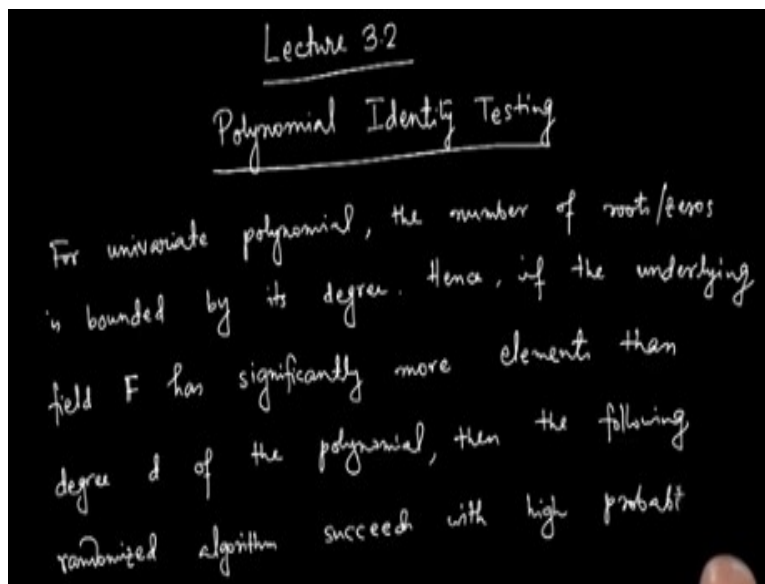 Lecture 3.2
Polynomial Identity Testing
For univariate polynomial, the number of roots/zeros
is bounded by its degree. Hence, if the underlying
field F has significantly more elements than
degree d of the polynomial, then the following
randomized algorithm succeeds with high probabi